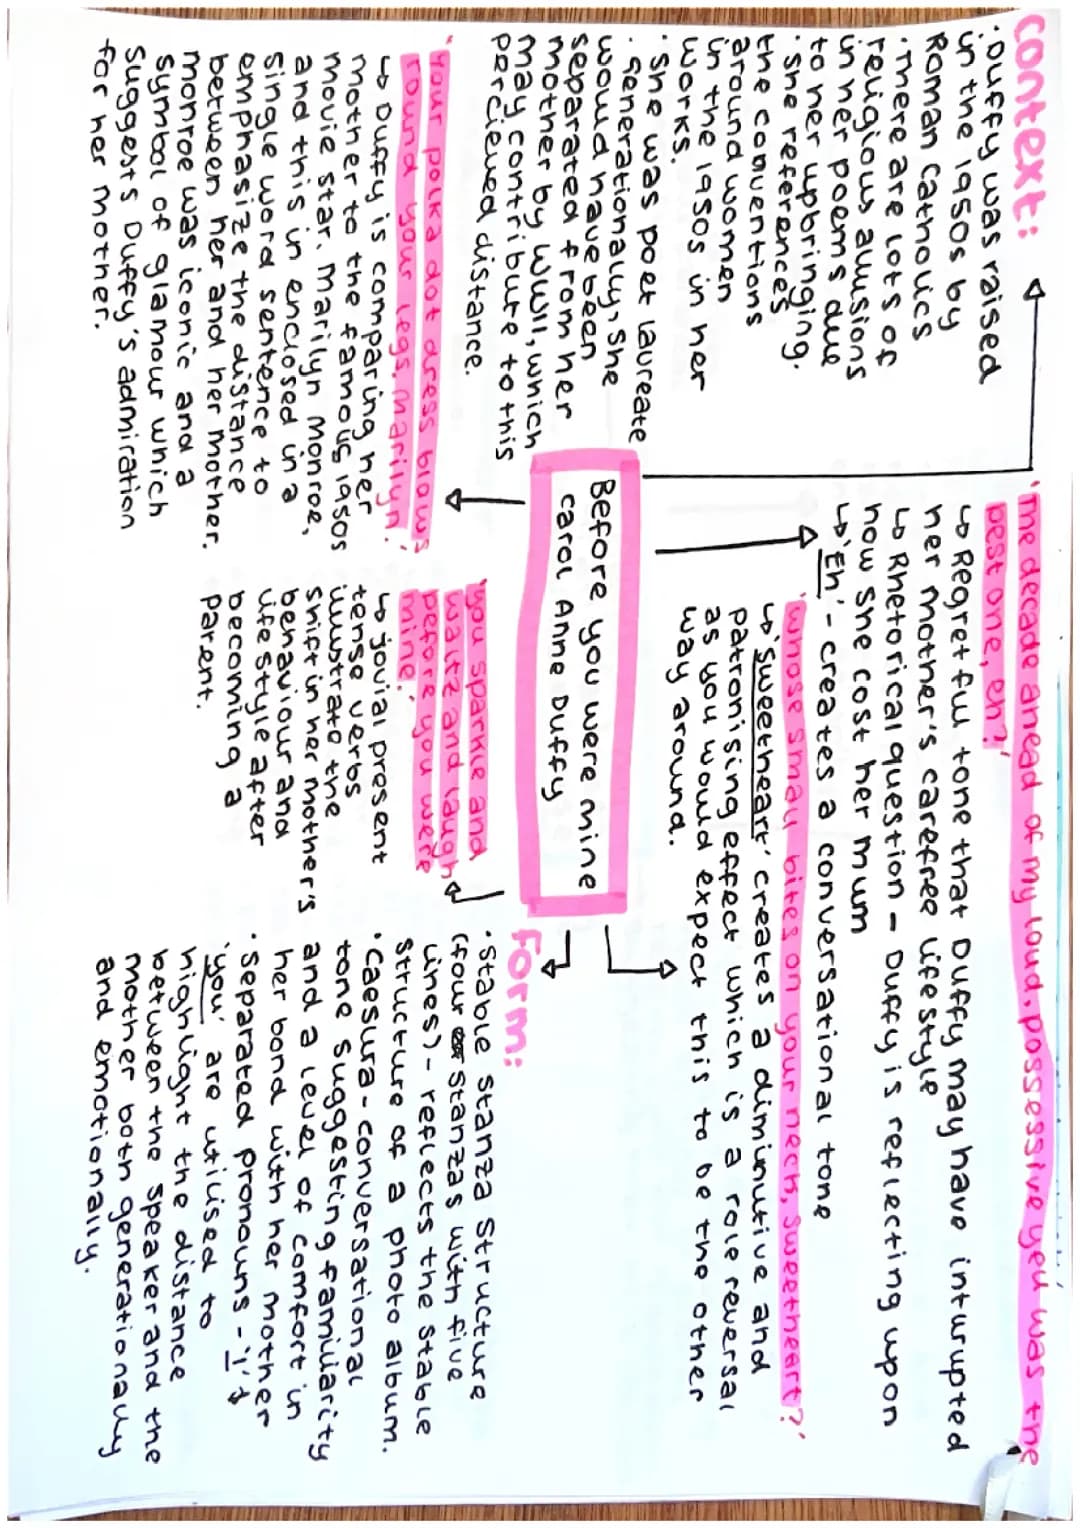 context:
• Duffy was raised
in the 1950s by
Roman Catholics
• There are lots of
religious allusions
in her poems due
to her upbringing.
• She references
the conventions
around women
in the 1950s in her
works.
• She was poet laureate
• Generationally, she
would have been
separated from her
mother by WWII, which
may contribute to this
percieved distance.
'The decade ahead of my loud, possessive yell was the
best one, eh?'
↳ Regretful tone that Duffy may have inturupted
her mother's carefree lifestyle
↳ Rhetorical question - Duffy is reflecting upon
how she cost her mum
↳ 'Eh' - creates a conversational tone
'whose small bites on your neck, sweetheart?'
↳ 'sweetheart' creates a diminutive and
patronising effect which is a role reversal
as you would expect this to be the other
way around.
Before you were mine
Carol Anne Duffy
'Your polka dot dress blows
round your legs. Marilyn.'
↳ Duffy is comparing her
mother to the famous 1950s
movie star, Marilyn Monroe,
and this in enclosed in a
single word sentence to
emphasize the distance
between her and her mother.
Monroe was iconic and a
symbol of glamour which
suggests Duffy's admiration
for her mother.
'you sparkle and
waltz and laugh
before you were
mine.'
↳ jovial present
tense verbs
illustrate the
shift in her mother's
behaviour and
lifestyle after
becoming a
parent.
Form:
• Stable stanza structure
(four stanzas with five
lines) - reflects the stable
structure of a photo album.
• Caesura - conversational
tone suggesting familiarity
and a level of comfort in
her bond with her mother
• Separated pronouns - 'I' &
'you' are utilised to
highlight the distance
between the speaker and the
mother both generationally
and emotionally.